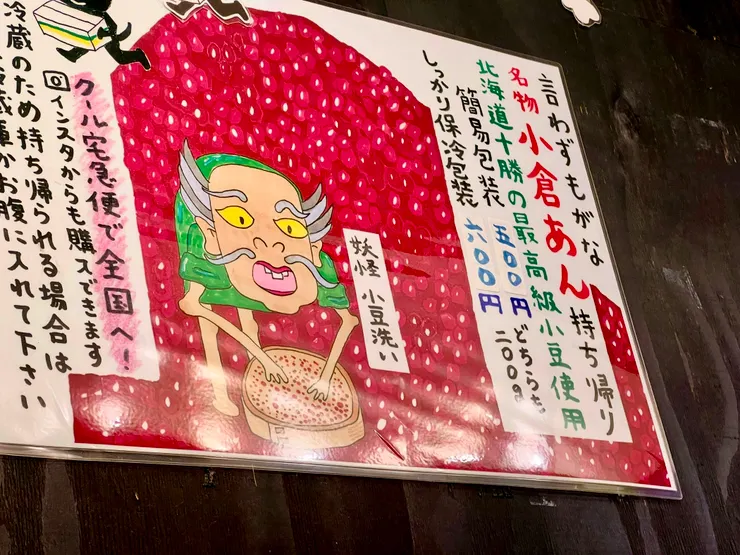 言わずもがな
名物小倉あん持ち帰り
北海道十勝の最高級小豆使用
簡易包装 五〇〇円
しっかり保冷包装 六〇〇円
どちらも二〇〇g
妖怪 小豆洗い
クール宅急便で全国へ!
インスタからも購入できます
冷蔵のため持ち帰られる場合は
お腹に入れて下さい